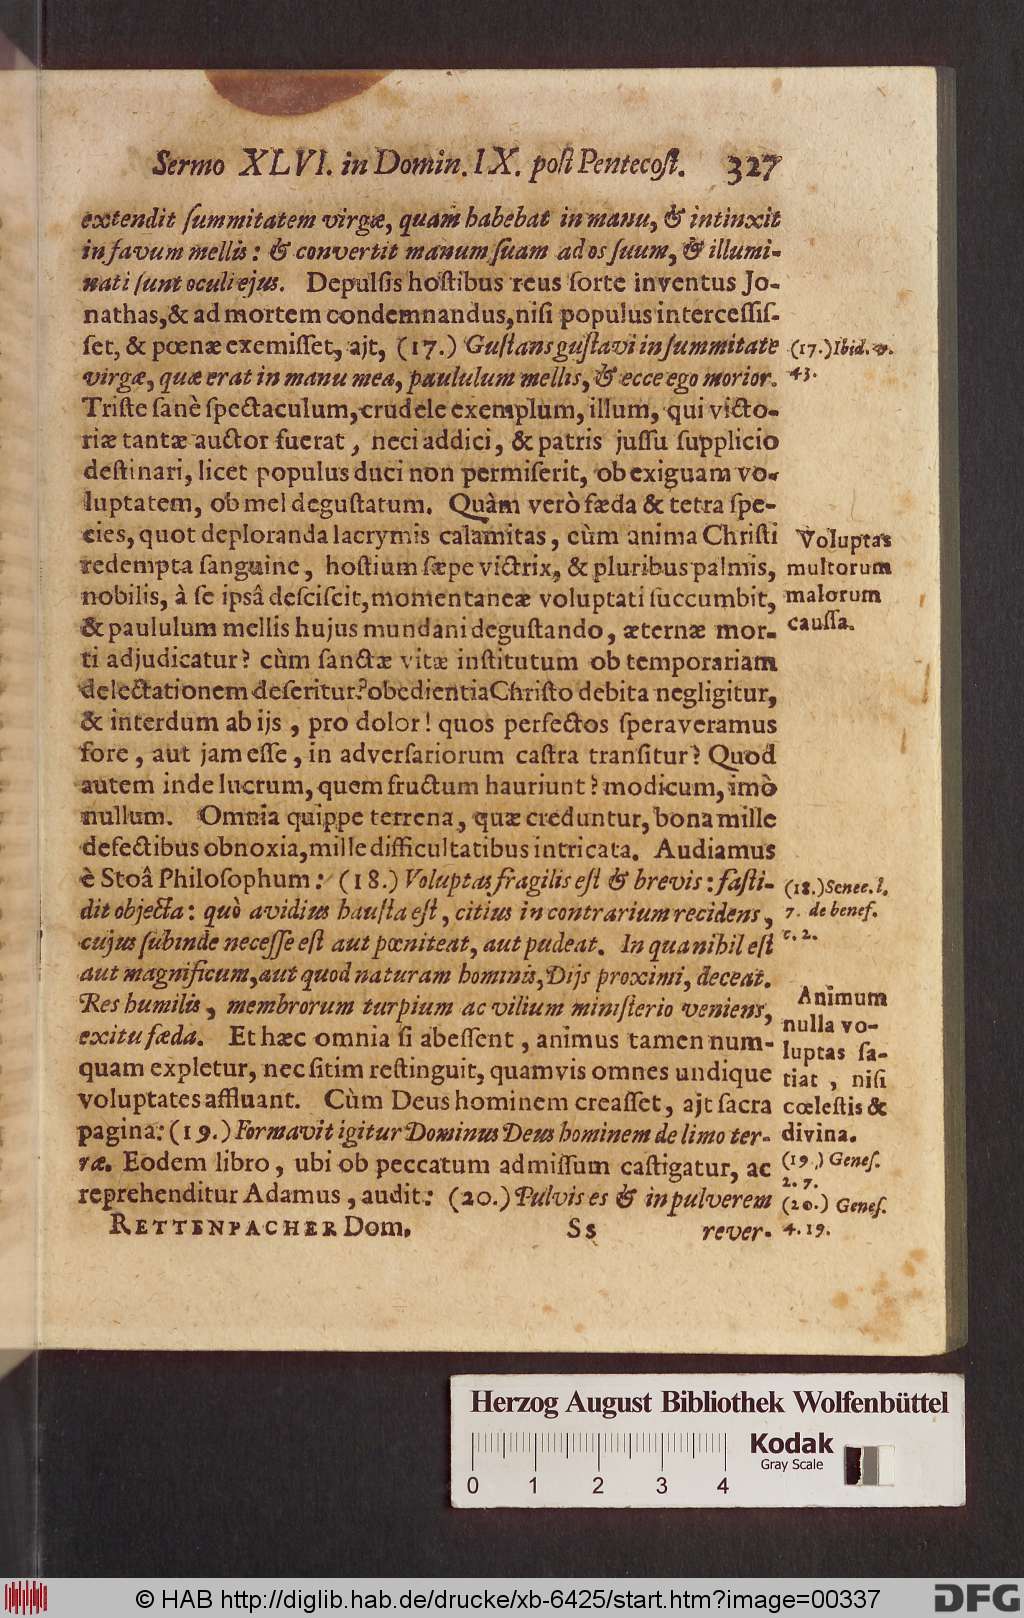 Sermo XLVI. in Domin. IX. poſt Pentecoſt. 327
extendit ſummitatem virgæ, quam habebat in manu, & intinxit
in favum mellis: & convertit manum ſuam ad os ſuum, & illumi-
nati ſunt oculi ejus. Depulſis hoſtibus reus ſorte inventus Jo-
nathas, & ad mortem condemnandus, niſi populus interceſſiſ-
ſet, & pœnæ exemiſſet, ajt, (17.) Guſtans guſtavi in ſummitate
virgæ, quæ erat in manu mea, paululum mellis, & ecce ego morior.
Triſte ſanè ſpectaculum, crudele exemplum, illum, qui victo-
riæ tantæ auctor fuerat, neci addici, & patris juſſu ſupplicio
deſtinari, licet populus duci non permiſerit, ob exiguam vo-
luptatem, ob mel deguſtatum. Quàm verò fæda & tetra ſpe-
cies, quot deploranda lacrymis calamitas, cùm anima Chriſti
redempta ſanguine, hoſtium ſæpe victrix, & pluribus palmis,
nobilis, à ſe ipsâ deſciſcit, momentaneæ voluptati ſuccumbit,
& paululum mellis hujus mundani deguſtando, æternæ mor-
ti adjudicatur? cùm ſanctæ vitæ inſtitutum ob temporariam
delectationem deſeritur? obedientia Chriſto debita negligitur,
& interdum ab ijs, pro dolor! quos perfectos ſperaveramus
fore, aut jam eſſe, in adverſariorum caſtra tranſitur? Quod
autem inde lucrum, quem fructum hauriunt? modicum, imò
nullum. Omnia quippe terrena, quæ creduntur, bona mille
defectibus obnoxia, mille difficultatibus intricata. Audiamus
è Stoâ Philoſophum: (18.) Voluptas fragilis eſt & brevis: faſti-
dit objecta: quò avidius hauſta eſt, citius in contrarium recidens,
cujus ſubinde neceſſe eſt aut pœniteat, aut pudeat. In qua nihil eſt
aut magnificum, aut quod naturam hominis, Dijs proximi, deceat.
Res humilis, membrorum turpium ac vilium miniſterio veniens,
exitu fæda. Et hæc omnia ſi abeſſent, animus tamen num-
quam expletur, nec ſitim reſtinguit, quamvis omnes undique
voluptates affluant. Cùm Deus hominem creaſſet, ajt ſacra
pagina: (19.) Formavit igitur Dominus Deus hominem de limo ter-
ræ. Eodem libro, ubi ob peccatum admiſſum caſtigatur, ac
reprehenditur Adamus, audit: (20.) Pulvis es & in pulverem
RETTENPACHER Dom. Ss rever-
(17.) Ibid. v.
43.
Voluptas
multorum
malorum
cauſſa.
(18.) Senec. l.
7. de benef.
c. 2.
Animum
nulla vo-
luptas ſa-
tiat, niſi
cœleſtis &
divina.
(19.) Geneſ.
2. 7.
(20.) Geneſ.
4. 19.
Herzog August Bibliothek Wolfenbüttel
0 1 2 3 4
Kodak
Gray Scale
© HAB http://diglib.hab.de/drucke/xb-6425/start.htm?image=00337
DFG